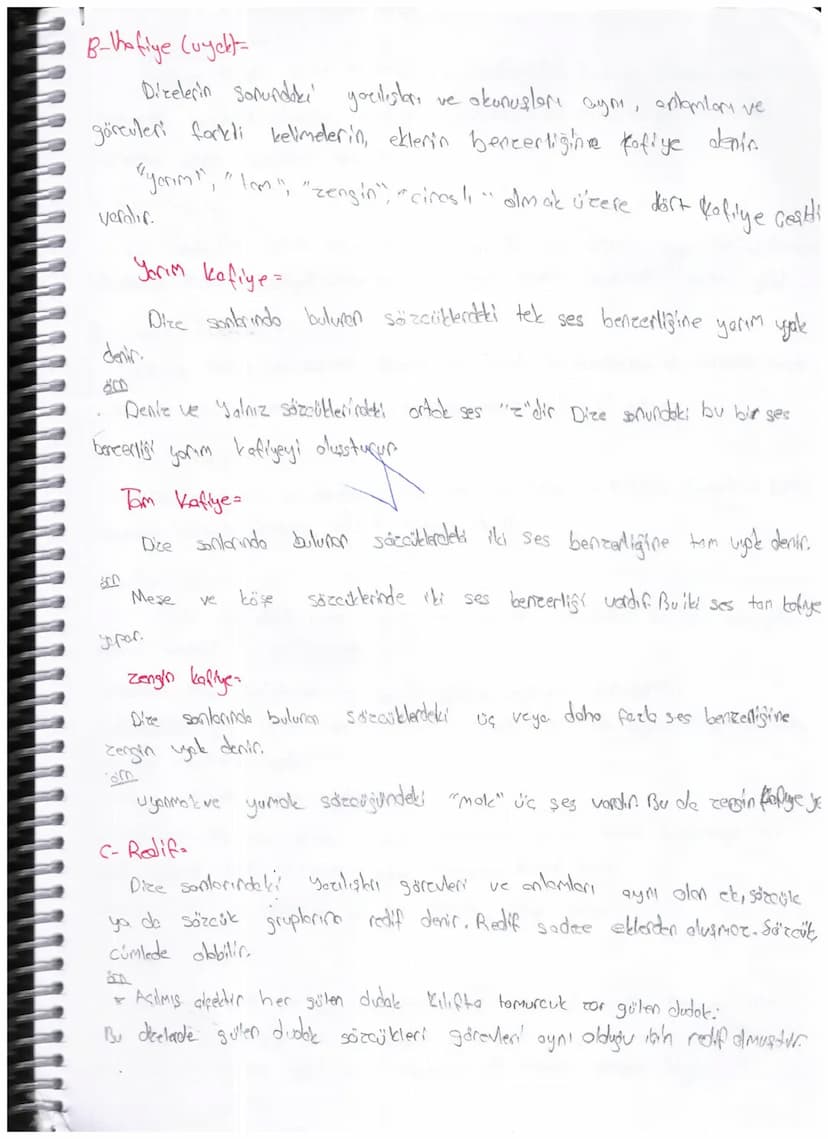 B-Kafiye (uyak)=
Dizelerin sonundaki yazılışları ve okunuşları aynı, anlamları ve
görevleri farklı kelimelerin, eklerin benzerliğine kafiye denir.
"yarım", "tam", "zengin", "cinaslı" olmak üzere dört kafiye çeşiti
vardır.
Yarım kafiye=
Dize sonlarında bulunan sözcüklerdeki tek ses benzerliğine yarım uyak
denir.
örn
. Deniz ve Yalnız sözcüklerindeki ortak ses "z"dir Dize sonundaki bu bir ses
benzerliği yarım kafiyeyi oluşturur
Tam Kafiye=
Dize sonlarında bulunan sözcüklerdeki iki ses benzerliğine tam uyak denir.
örn
Meşe ve köşe sözcüklerinde iki ses benzerliği vardır. Bu iki ses tam kafiye
yapar.
zengin kafiye=
Dize sonlarında bulunan sözcüklerdeki üç veya daha fazla ses benzerliğine
zengin uyak denir.
örn
Uyanmak ve yumak sözcüğündeki "mak" üç ses vardır. Bu da zengin kafiye
C- Redif=
Dize sonlarındaki yazılışları görevleri ve anlamları aynı olan ek, sözcük
ya da sözcük gruplarına redif denir. Redif sadece eklerden oluşmaz. Sözcük,
cümlede olabilir.
örn
* Açılmış çiçektir her gülen dudak Kılıfta tomurcuk zor gülen dudak.
Bu dizelerde gülen dudak sözcükleri görevleri aynı olduğu için redif olmuştur.